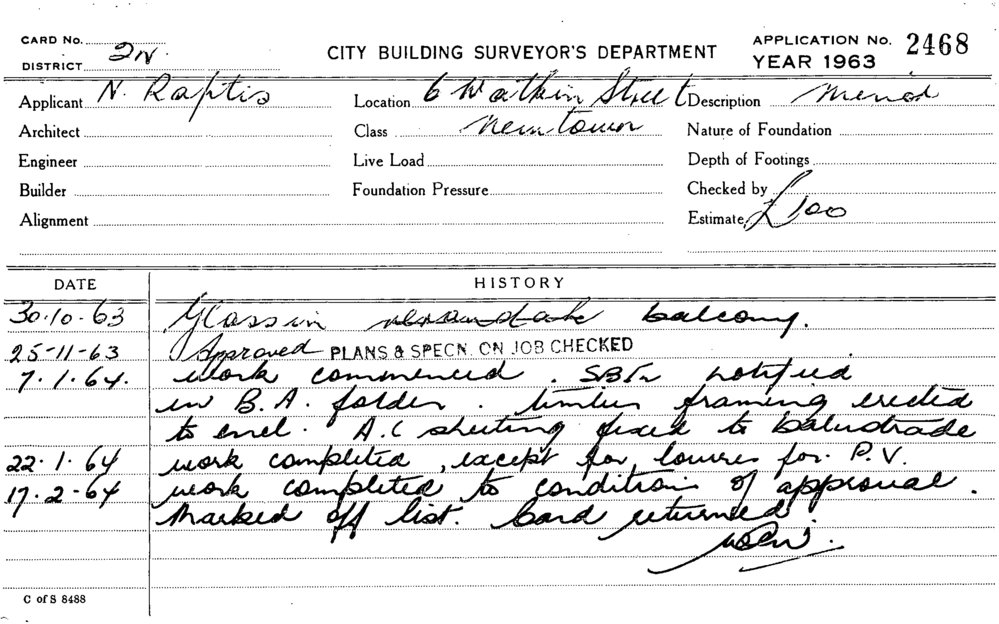 CARD No.
DISTRICT 2N.
CITY BUILDING SURVEYOR'S DEPARTMENT
APPLICATION No. 2468
YEAR 1963
Applicant N. Raptis Location 6 Watkin Street Description Minor
Architect Class Newtown Nature of Foundation
Engineer Live Load Depth of Footings
Builder Foundation Pressure Checked by
Alignment Estimate £100
DATE HISTORY
30.10.63 Glass in balcony.
25-11-63 Approved PLANS & SPECN. ON JOB CHECKED
7.1.64. work commenced. notified
in B.A. folder. timber framing erected
to encl. A.C sheeting fixed to balustrade
22.1.64 work completed, except for louvres for P.V.
17.2-64 work completed to conditions of approval.
Marked off list. Card returned
C of S 8488